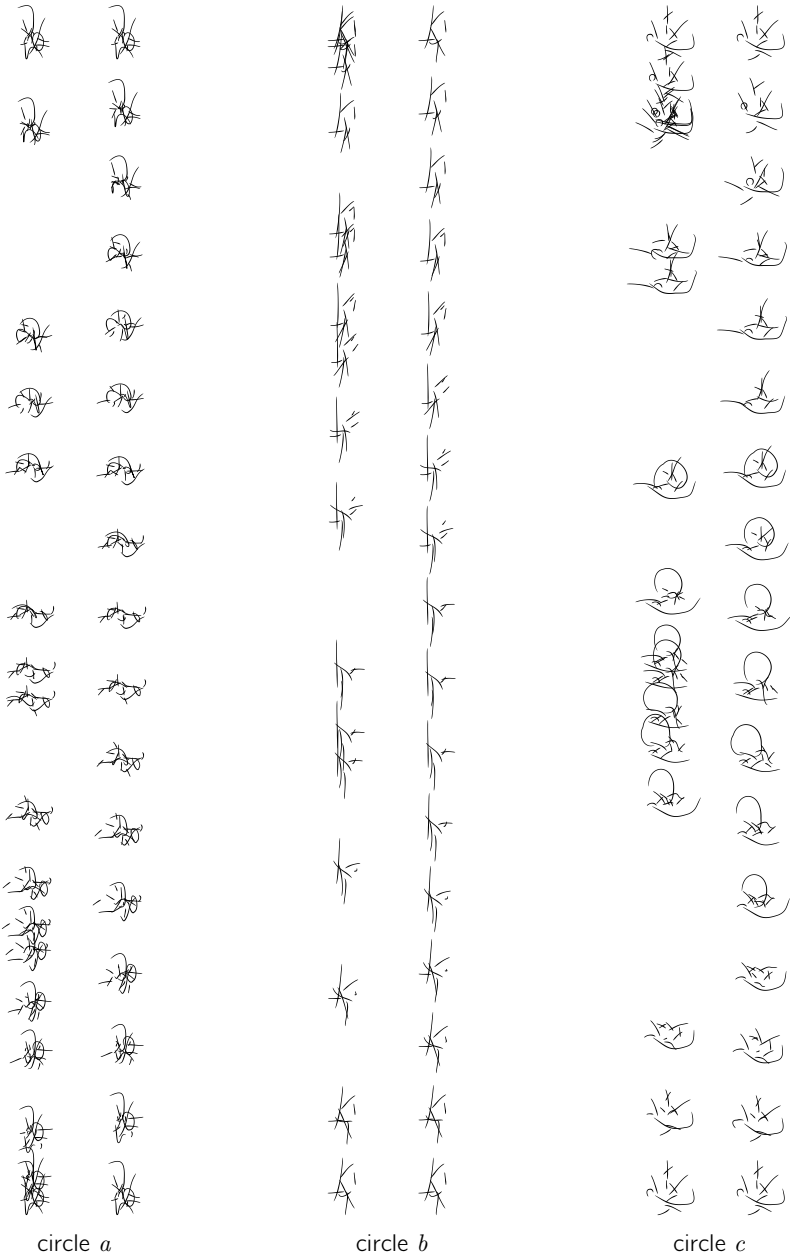 circle a circle b circle c